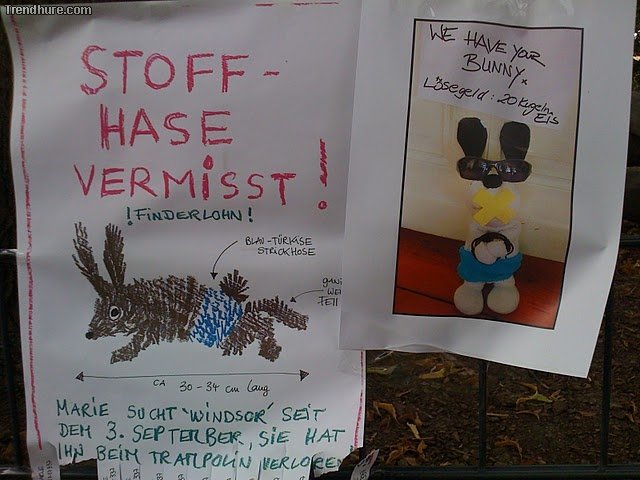 Trendhure.com
STOFF-
HASE
VERMISST!
!FINDERLOHN!
BLAU-TÜRKISE
STRICKHOSE
FELL
CA 30-34 cm lang
MARIE SUCHT 'WINDSOR' SEIT
DEM 3. SEPTERBER, SIE HAT
IHN BEIM TRAMPOLIN VERLOREN
WE HAVE YOUR
BUNNY.
Lösegeld: 20 Kugeln
Eis